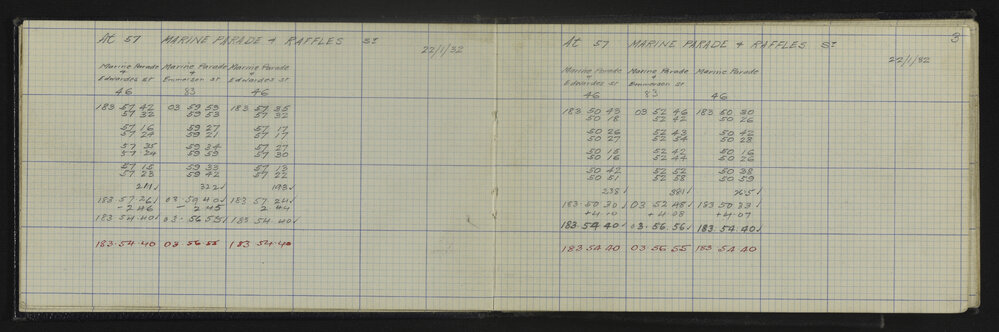 At 57 MARINE PARADE & RAFFLES St
22/1/32
Marine Parade Marine Parade Marine Parade
& & &
Edwardes St Emmerson St Edwardes St
46 83 46
183 57 42 03 59 53 183 57 35
57 32 59 53 57 32
57 16 59 27 57 17
57 24 59 21 57 17
57 35 59 34 57 27
57 24 59 59 57 30
57 15 59 33 57 13
57 23 59 42 57 22
211√ 322√ 193√
183 57 26√ 03 59 40√ 183 57 24√
- 2 46 - 2 45 2 44
183 54 40√ 03 56 55√ 183 54 40√
183 54 40 03 56 55 183 54 40
3
At 57 MARINE PARADE & RAFFLES St
22/1/32
Marine Parade Marine Parade Marine Parade
& &
Edwardes St Emmerson St
46 83 46
183 50 43 03 52 46 183 50 30
50 18 52 42 50 26
50 26 52 43 50 42
50 27 52 54 50 28
50 15 52 42 50 16
50 16 52 44 50 26
50 42 52 52 50 38
50 51 52 58 50 59
238√ 381√ 265√
183 50 30√ 03 52 48√ 183 50 33√
+4 10 +4 08 +4 07
183 54 40√ 03 56 56√ 183 54 40√
183 54 40 03 56 55 183 54 40